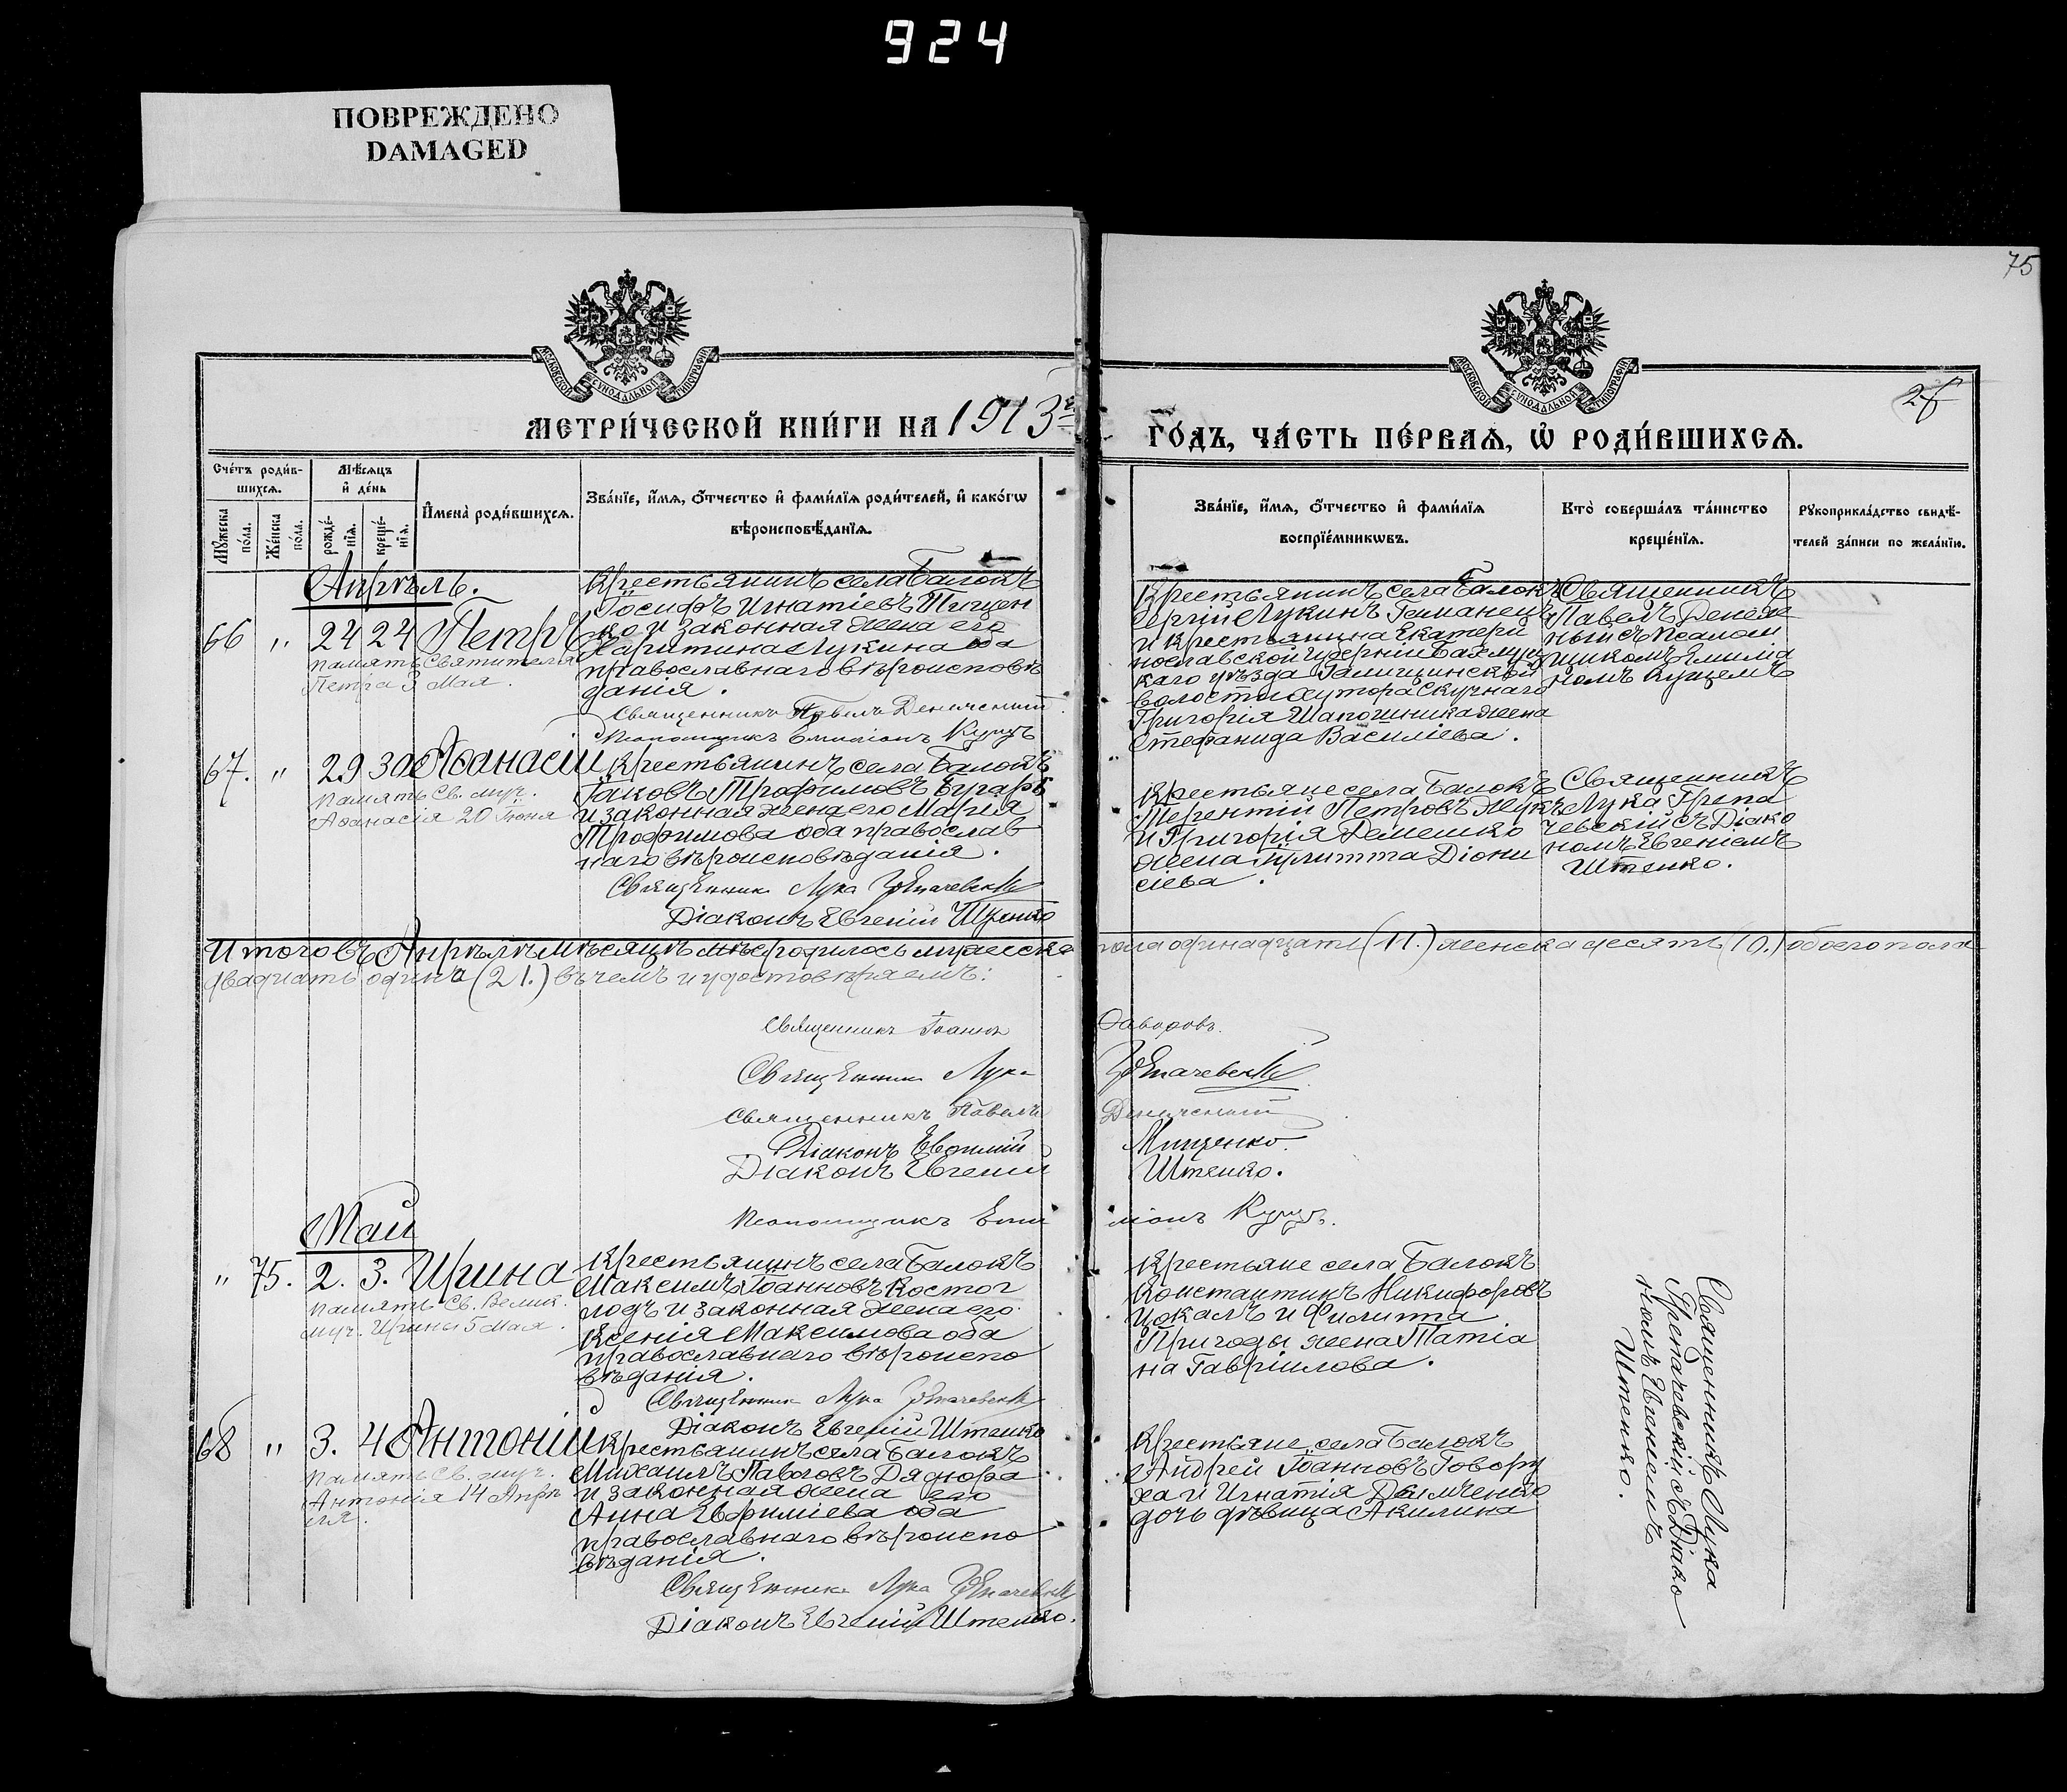 924
ПОВРЕЖДЕНО
DAMAGED
75
МОСКОВСКОЙ СѴНОДАЛЬНОЙ ТИПОГРАФІИ
МОСКОВСКОЙ СѴНОДАЛЬНОЙ ТИПОГРАФІИ
МЕТРИ́ЧЕСКОЙ КНИ́ГИ НА 1913 г
ГО́ДЪ, ЧА́СТЬ ПЕ́РВАѦ, Ѡ РОДИ́ВШИХСѦ.
Сче́тъ роди́в-
шихсѧ.
Мꙋ́жеска по́ла.
Же́нска по́ла.
Мѣ́сѧцъ
и҆ де́нь
рожде́-
нїѧ.
креще́-
нїѧ.
И҆мена̀ роди́вшихсѧ.
Зва́нїе, и҆́мѧ, ѻ҆́тчество и҆ фами́лїѧ роди́телей, и҆ како́гѡ
вѣроисповѣ́данїѧ.
Зва́нїе, и҆́мѧ, ѻ҆́тчество и҆ фами́лїѧ
воспрїе́мникѡвъ.
Кто̀ соверша́лъ та́инство
креще́нїѧ.
Рꙋкоприкла́дство свидѣ́-
телей за́писи по жела́нїю.
Апрѣль.
66 " 24 24 Петръ
память Святителя
Петра 3 Мая.
Крестьянинъ села Балокъ
Іосифъ Игнатіевъ Тищен
ко и законная жена его
Харитина Лукина оба
православнаго вѣроисповѣ
данія.
Священникъ Павелъ
Псаломщикъ Емиліанъ Куцъ
Крестьянинъ села Балокъ
Сергій Лукинъ Геманецъ
и крестьянина Екатери
нославской губерніи Бахмут
каго уѣзда
волости хутора Скучнаго
Григорія Шапошника жена
Стефанида Василіева.
Священникъ
Павелъ Денеж
ный съ псалом
щикомъ Емилиа
номъ Куцемъ
67. " 29 30 Аѳанасій
Память Св. муч.
Аѳанасія 20 Іюня
Крестьянинъ села Балокъ
Іаковъ Трофимовъ
и законная жена его Марія
Трофимова оба православ
наго вѣроисповѣданія.
Священникъ Лука
Діаконъ Евгеній Штенко
Крестьяне села Балокъ
Терентій Петровъ Жукъ
и Григорія Демешко
жена Іулитта Діони
сіева.
Священникъ
Лука Грепа
чевскій съ Діако
номъ Евгеніемъ
Штенко.
Итого въ Апрѣлѣ мѣсяцѣ родилось мужеска
пола одинадцать (11.) женска десять (10.) обоего пола
двадцать одинъ (21.) въ чемъ и удостовѣряемъ:
Священникъ Іоаннъ Ѳаворовъ.
Священникъ Лука Грепачевскій
Священникъ Павелъ
Діаконъ Евфимій Мищенко.
Діаконъ Евгеній Штенко.
Псаломщикъ Емиліанъ Куцъ.
Май
" 75. 2. 3. Ирина
Память Св. Велик.
муч. Ирины 5 Мая.
Крестьянинъ села Балокъ
Максимъ Іоанновъ Костог
лодъ и законная жена его
Ксенія Максимова оба
православнаго вѣроиспо
вѣданія.
Священникъ Лука Грепачевскій
Діаконъ Евгеній Штенко
Крестьяне села Балокъ
Константинъ Никифоровъ
Цокалъ и Филиппа
Пригоды жена Татіа
на Гавріилова.
68 " 3. 4 Антоній
Память Св. муч.
Антонія 14 Апрѣ
ля.
Крестьянинъ села Балокъ
Михаилъ Павловъ Дядюра
и законная жена его
Анна Евфиміева оба
православнаго вѣроиспо
вѣданія.
Священникъ Лука Грепачевскій
Діаконъ Евгеній Штенко.
Крестьяне села Балокъ
Андрей Іоанновъ Говору
ха и Игнатія
дочь дѣвица Акилина
Священникъ Лука
Грепачевскій съ Діако
номъ Евгеніемъ
Штенко.